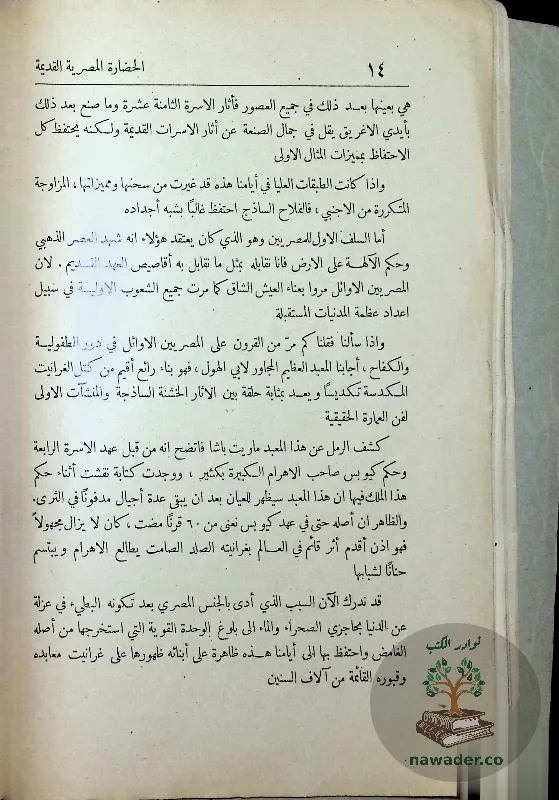 ١٤
الحضارة المصرية القديمة
هي بعينها بعد ذلك في جميع العصور فأثار الاسرة الثامنة عشرة وما صنع بعد ذلك
بأيدي الاغريق يقل في جمال الصنعة عن أثار الاسرات القديمة ولكنه يحتفظ كل
الاحتفاظ بمميزات المثال الاولى
واذا كانت الطبقات العليا في أيامنا هذه قد غيرت من سحنها ومميزاتها، المزاوجة
المتكررة من الاجنبي، فالفلاح الساذج احتفظ غالبًا بشبه أجداده
أما السلف الاول للمصريين وهو الذي كان يعتقد هؤلاء انه شهد العصر الذهبي
وحكم الآلهة على الارض فانا نقابله بمثل ما نقابل به أقاصيص العهد القديم. لان
المصريين الاوائل مروا بعناء العيش الشاق كما مرت جميع الشعوب الاولية في سبيل
اعداد عظمة المدنيات المستقبلة
واذا سألنا فقلنا كم مرّ من القرون على المصريين الاوائل في دور الطفولية
والكفاح، أجابنا المعبد العظيم المجاور لابي الهول، فهو بناء رائع أقيم من كتل الغرانيت
المكدسة تكديسًا ويعد بمثابة حلقة بين الاثار الخشنة الساذجة والمنشآت الاولى
لفن العمارة الحقيقية
كشف الرمل عن هذا المعبد ماريت باشا فاتضح انه من قبل عهد الاسرة الرابعة
وحكم كيوبس صاحب الاهرام الكبيرة بكثير، ووجدت كتابة نقشت أثناء حكم
هذا الملك فيها ان هذا المعبد سيظهر للعيان بعد ان يبقى عدة أجيال مدفونًا في الثرى.
والظاهر ان أصله حتى في عهد كيوبس نعنى من ٦٠ قرنًا مضت، كان لا يزال مجهولاً
فهو اذن أقدم أثر قائم في العالم بغرانيته الصلد الصامت يطالع الاهرام ويبتسم
حنانًا لشبابها
قد ندرك الآن السبب الذي أدى بالجنس المصري بعد تكونه البطيء في عزلة
عن الدنيا بحاجزي الصحراء والماء الى بلوغ الوحدة القوية التي استخرجها من أصله
الغامض واحتفظ بها الى أيامنا هذه ظاهرة على أبنائه ظهورها على غرانيت معابده
وقبوره القائمة من آلاف السنين
نوادر الكتب
nawader.co